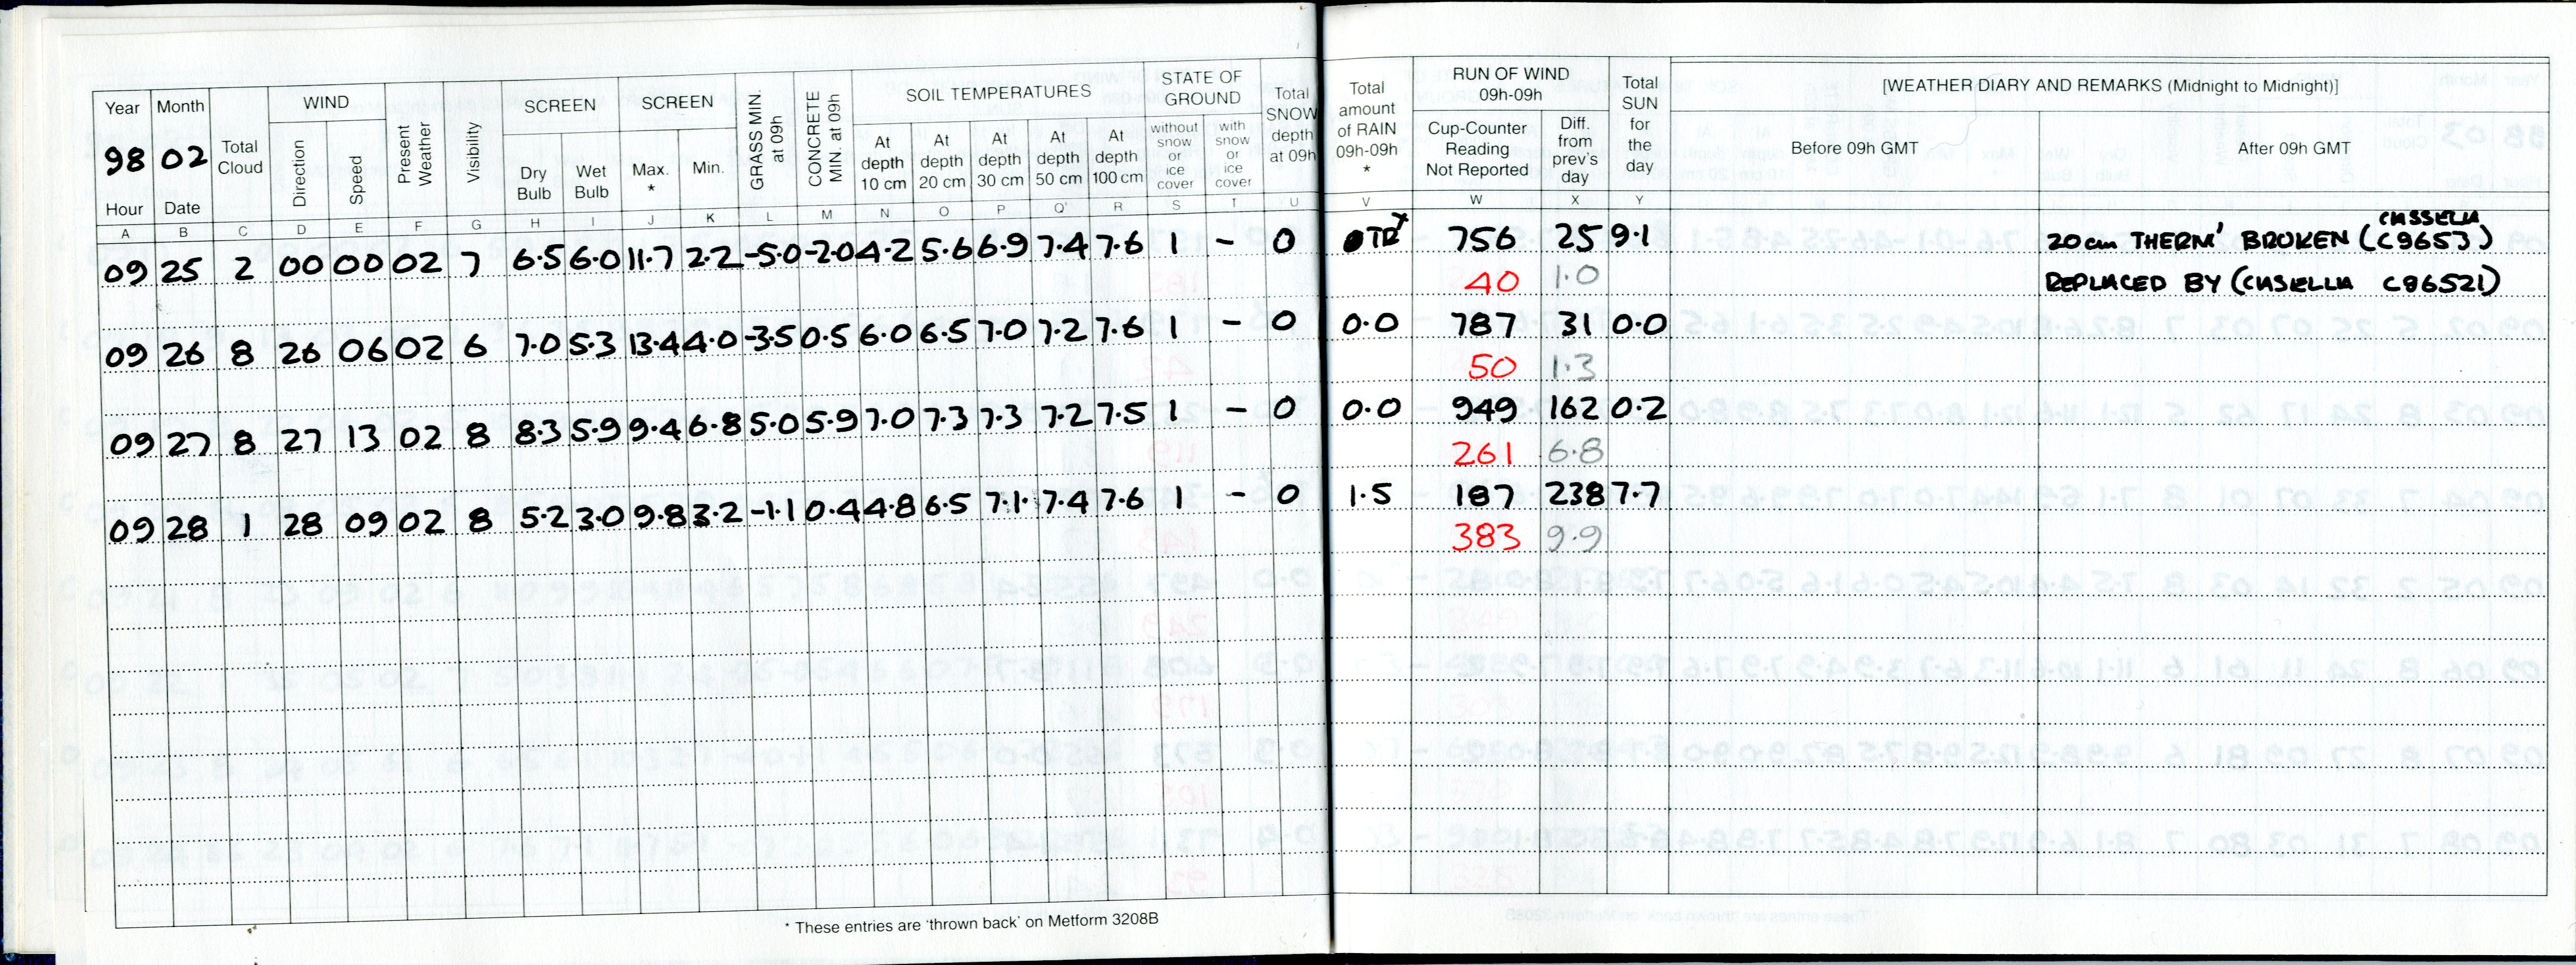 Year Month Total Cloud WIND Present Weather Visibility SCREEN SCREEN GRASS MIN. at 09h CONCRETE MIN. at 09h SOIL TEMPERATURES STATE OF GROUND Total SNOW depth at 09h Total amount of RAIN 09h-09h * RUN OF WIND 09h-09h Total SUN for the day [WEATHER DIARY AND REMARKS (Midnight to Midnight)]
98 02 Direction Speed Dry Bulb Wet Bulb Max. * Min. At depth 10 cm At depth 20 cm At depth 30 cm At depth 50 cm At depth 100 cm without snow or ice cover with snow or ice cover Cup-Counter Reading Not Reported Diff. from prev's day Before 09h GMT After 09h GMT
Hour Date
A B C D E F G H I J K L M N O P Q R S T U V W X Y
09 25 2 00 00 02 7 6.5 6.0 11.7 2.2 -5.0 -2.0 4.2 5.6 6.9 7.4 7.6 1 - 0 TR 756 25 9.1 20cm THERM' BROKEN (CASSELLA C9653)
40 1.0 REPLACED BY (CASELLA C96521)
09 26 8 26 06 02 6 7.0 5.3 13.4 4.0 -3.5 0.5 6.0 6.5 7.0 7.2 7.6 1 - 0 0.0 787 31 0.0
50 1.3
09 27 8 27 13 02 8 8.3 5.9 9.4 6.8 5.0 5.9 7.0 7.3 7.3 7.2 7.5 1 - 0 0.0 949 162 0.2
261 6.8
09 28 1 28 09 02 8 5.2 3.0 9.8 3.2 -1.1 0.4 4.8 6.5 7.1 7.4 7.6 1 - 0 1.5 187 238 7.7
383 9.9
* These entries are 'thrown back' on Metform 3208B